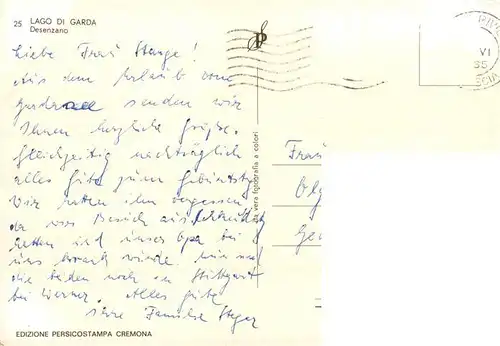 25 LAGO DI GARDA
Desenzano
Liebe Frau Stenge!
Aus dem Urlaub vom
Gardasee senden wir
Ihnen herzliche Grüße.
Gleichzeitig nachträglich
alles Gute zum Geburtstag
Wir hatten ihn vergessen
da wir Besuch aus
hatten und unser Opa bei
uns krank wurde. sind
die beiden noch in Stuttgart
bei Werner. Alles Gute
Ihre Familie Steger
EDIZIONE PERSICOSTAMPA CREMONA
vera fotografia a colori
Frau
VI